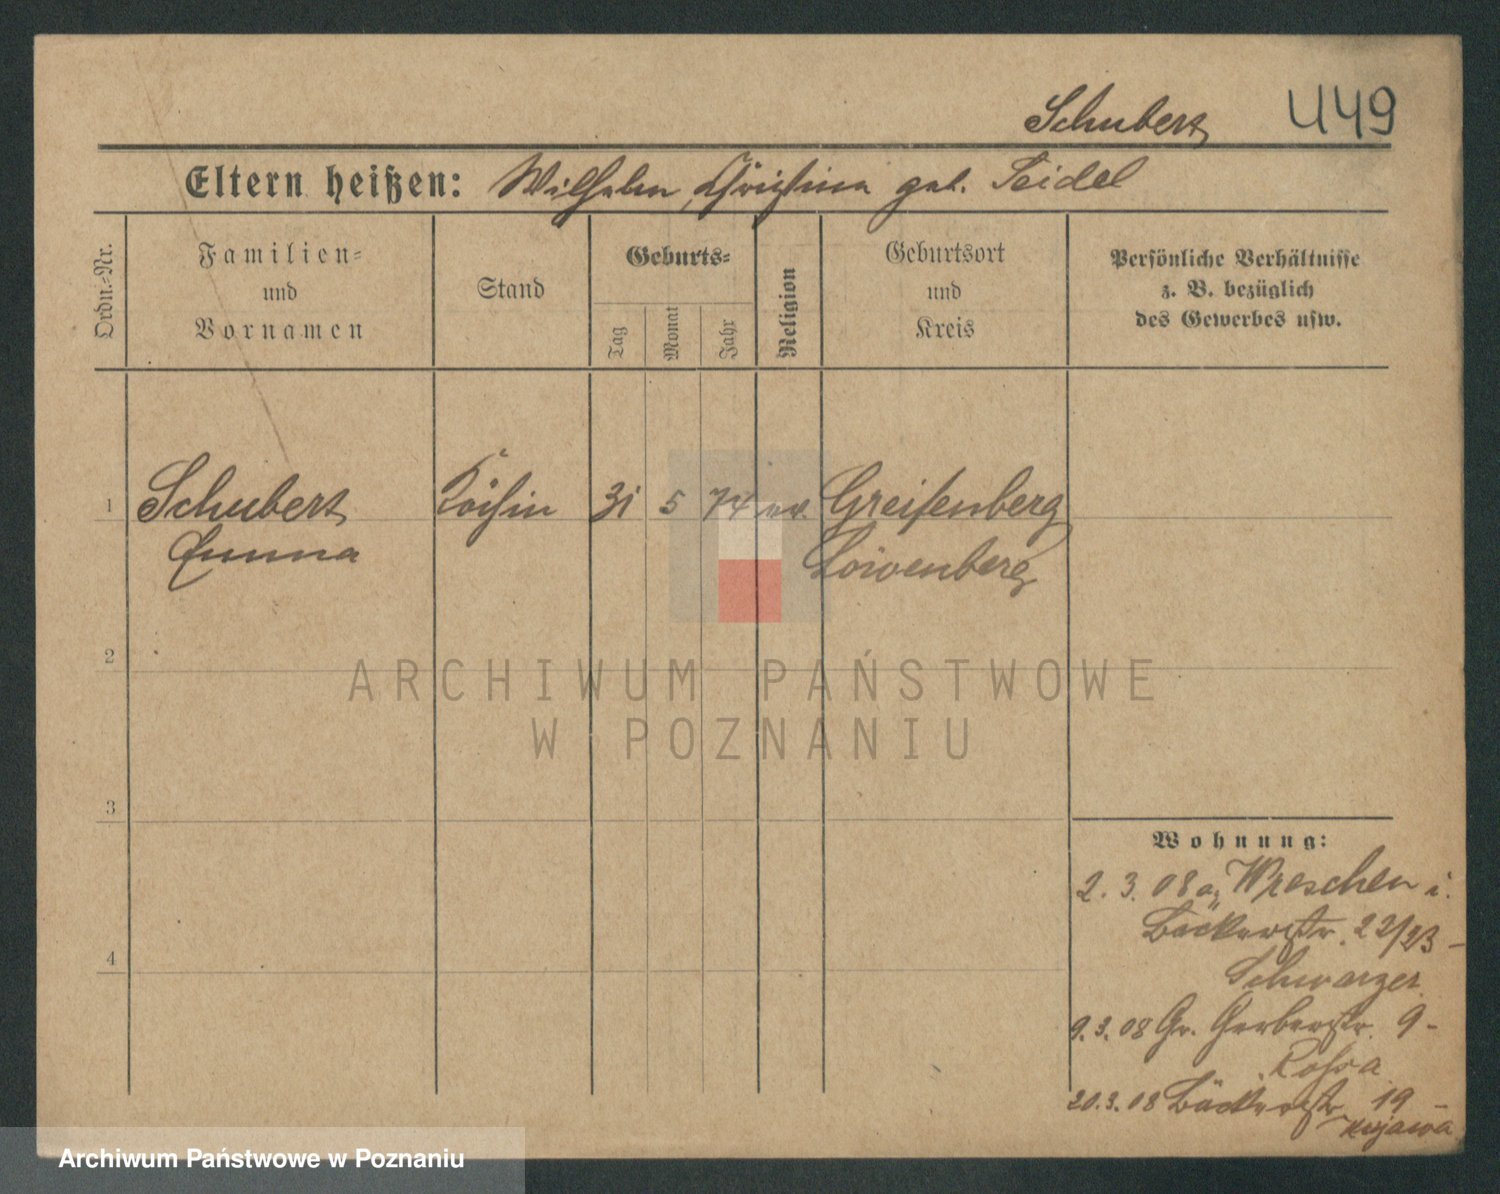 Schubert 449
Eltern heißen: Wilhelm, Christina geb. Seidel
Ordn.-Nr.
Familien-
und
Vornamen
Stand
Geburts-
Tag
Monat
Jahr
Religion
Geburtsort
und
Kreis
Persönliche Verhältnisse
z. B. bezüglich
des Gewerbes usw.
1 Schubert Köchin 31 5 74 ev. Greifenberg
Emma Löwenberg
2
3
4
Wohnung:
2. 3. 08 a. Wreschen i.
Bäckerstr. 22/23 -
Schwarzer
9. 3. 08 Gr. Gerberstr. 9 -
20.3.08 Bäckerstr. 19 -
Kujawa
ARCHIWUM PAŃSTWOWE
W POZNANIU
Archiwum Państwowe w Poznaniu